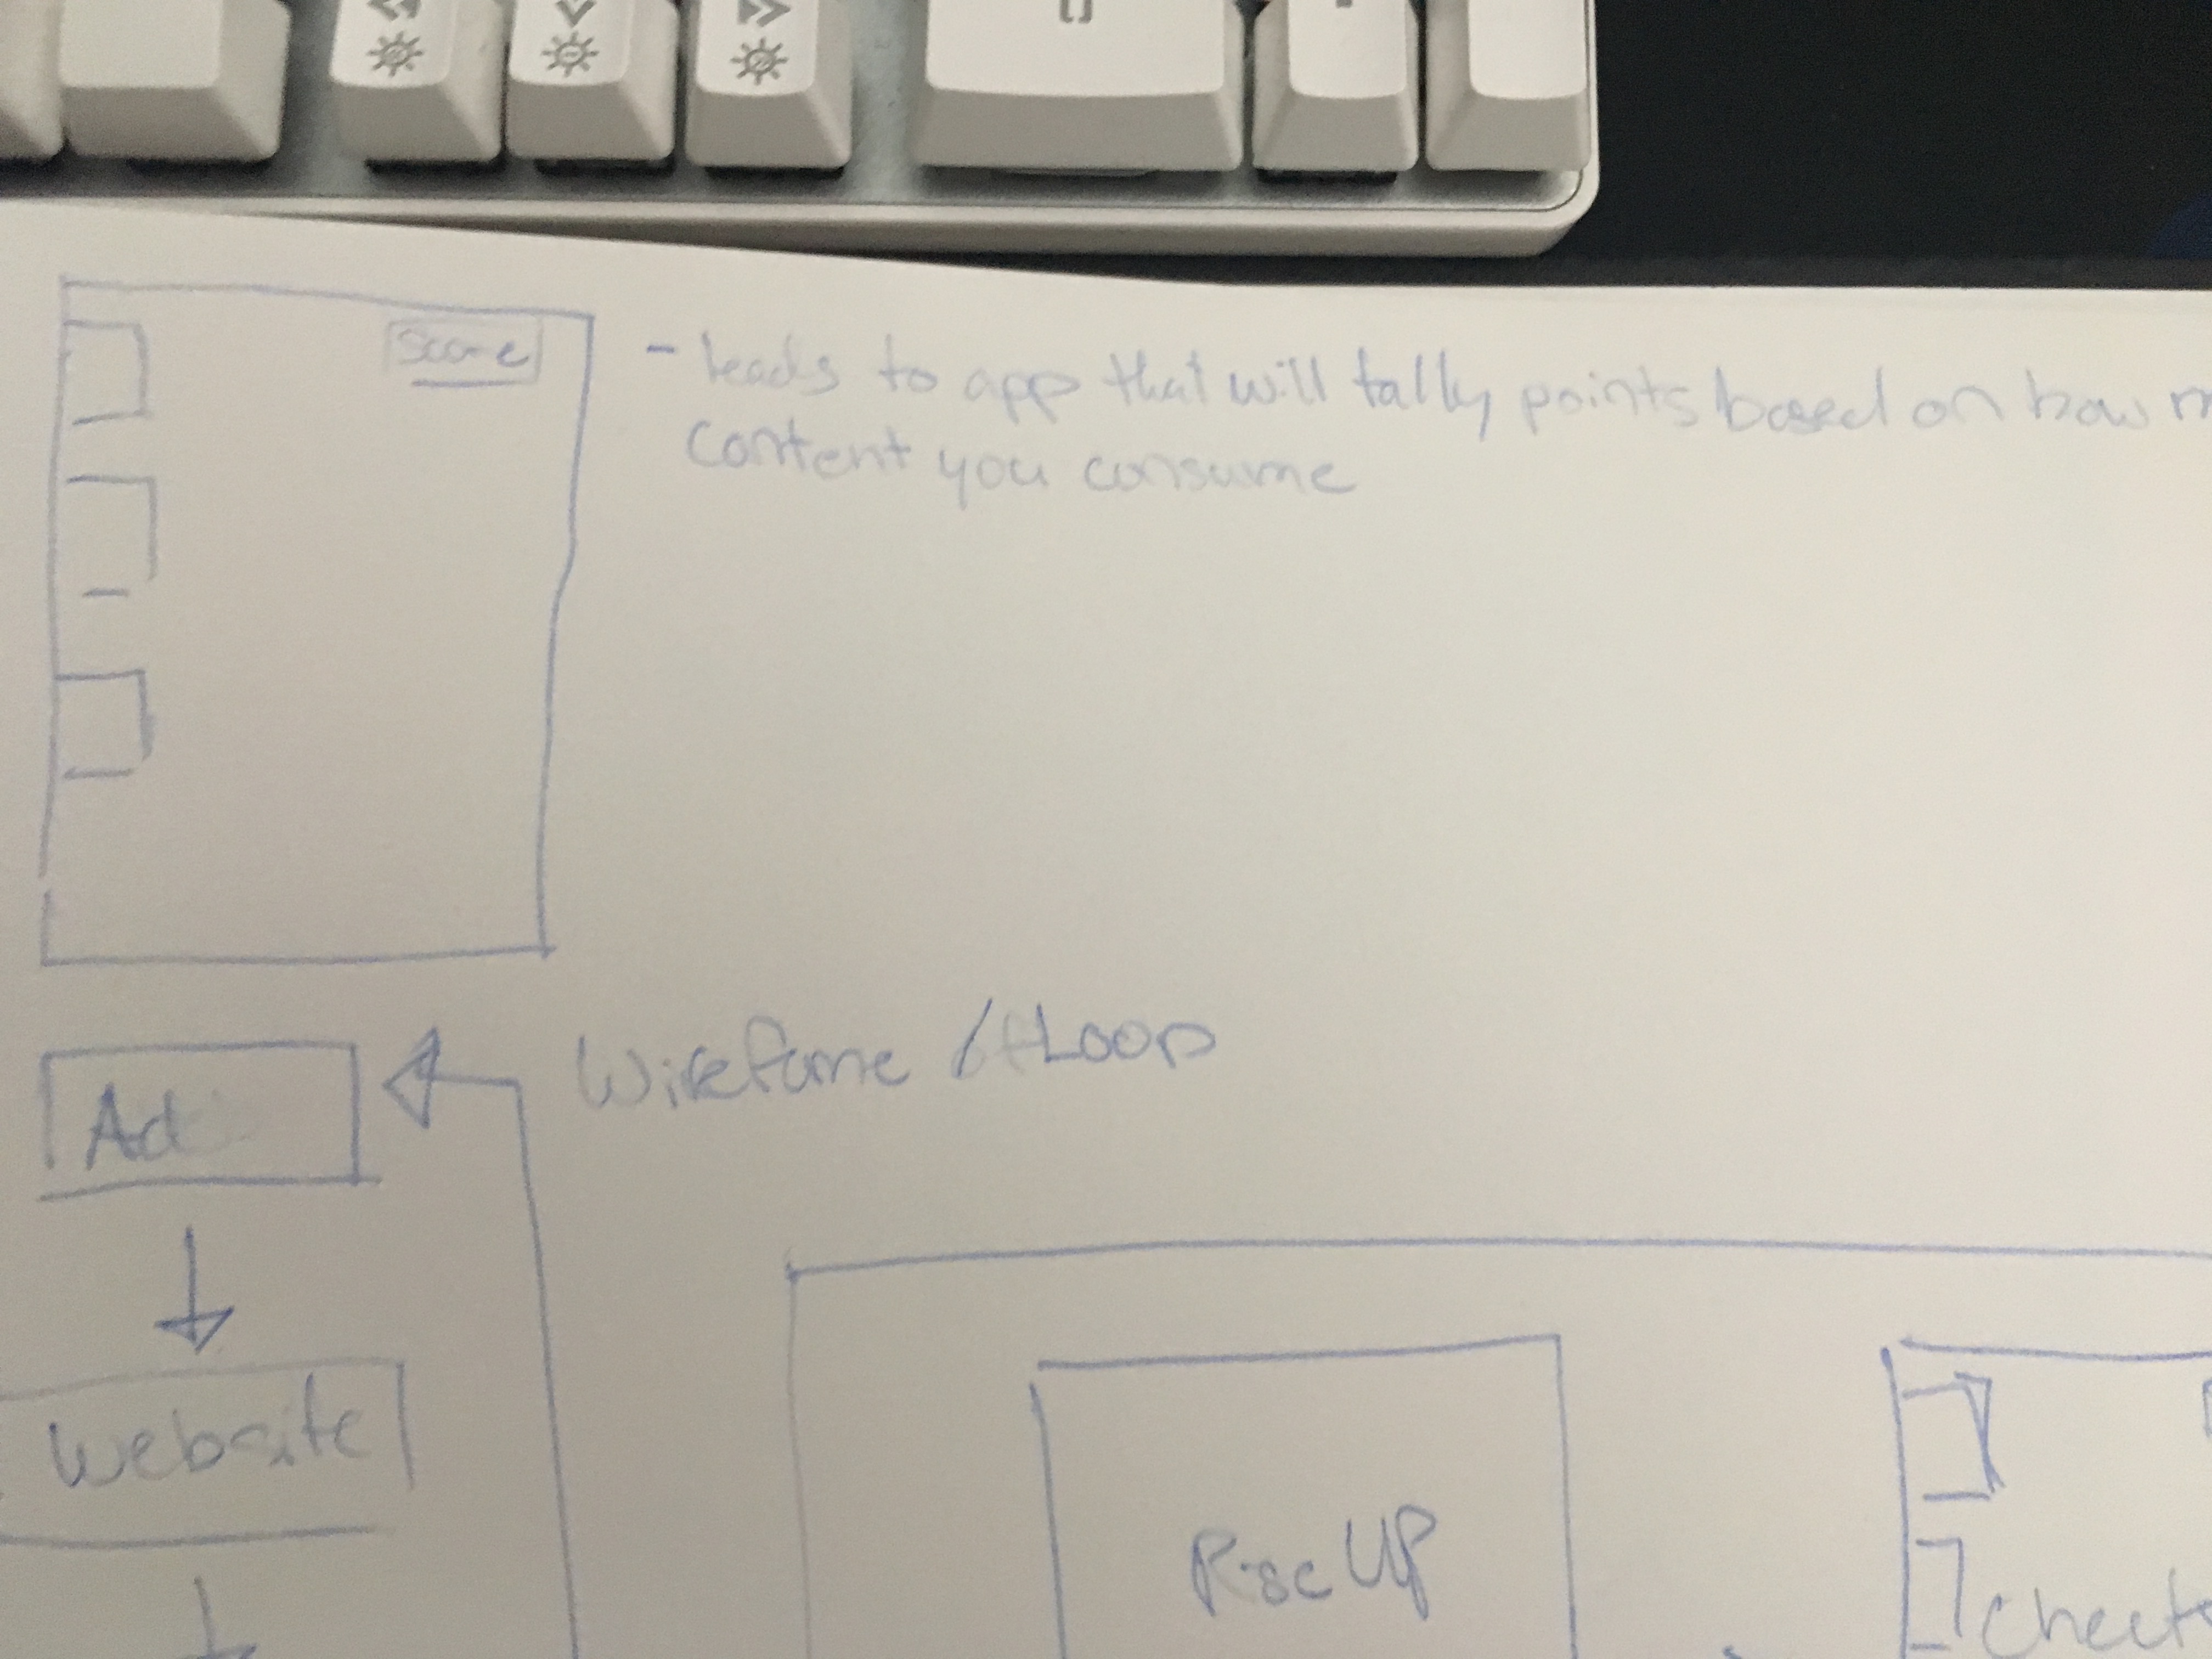 Score
- leads to app that will tally points based on how m
content you consume
Wireframe / Loop
Ad
Website
Rise UP
Cheet